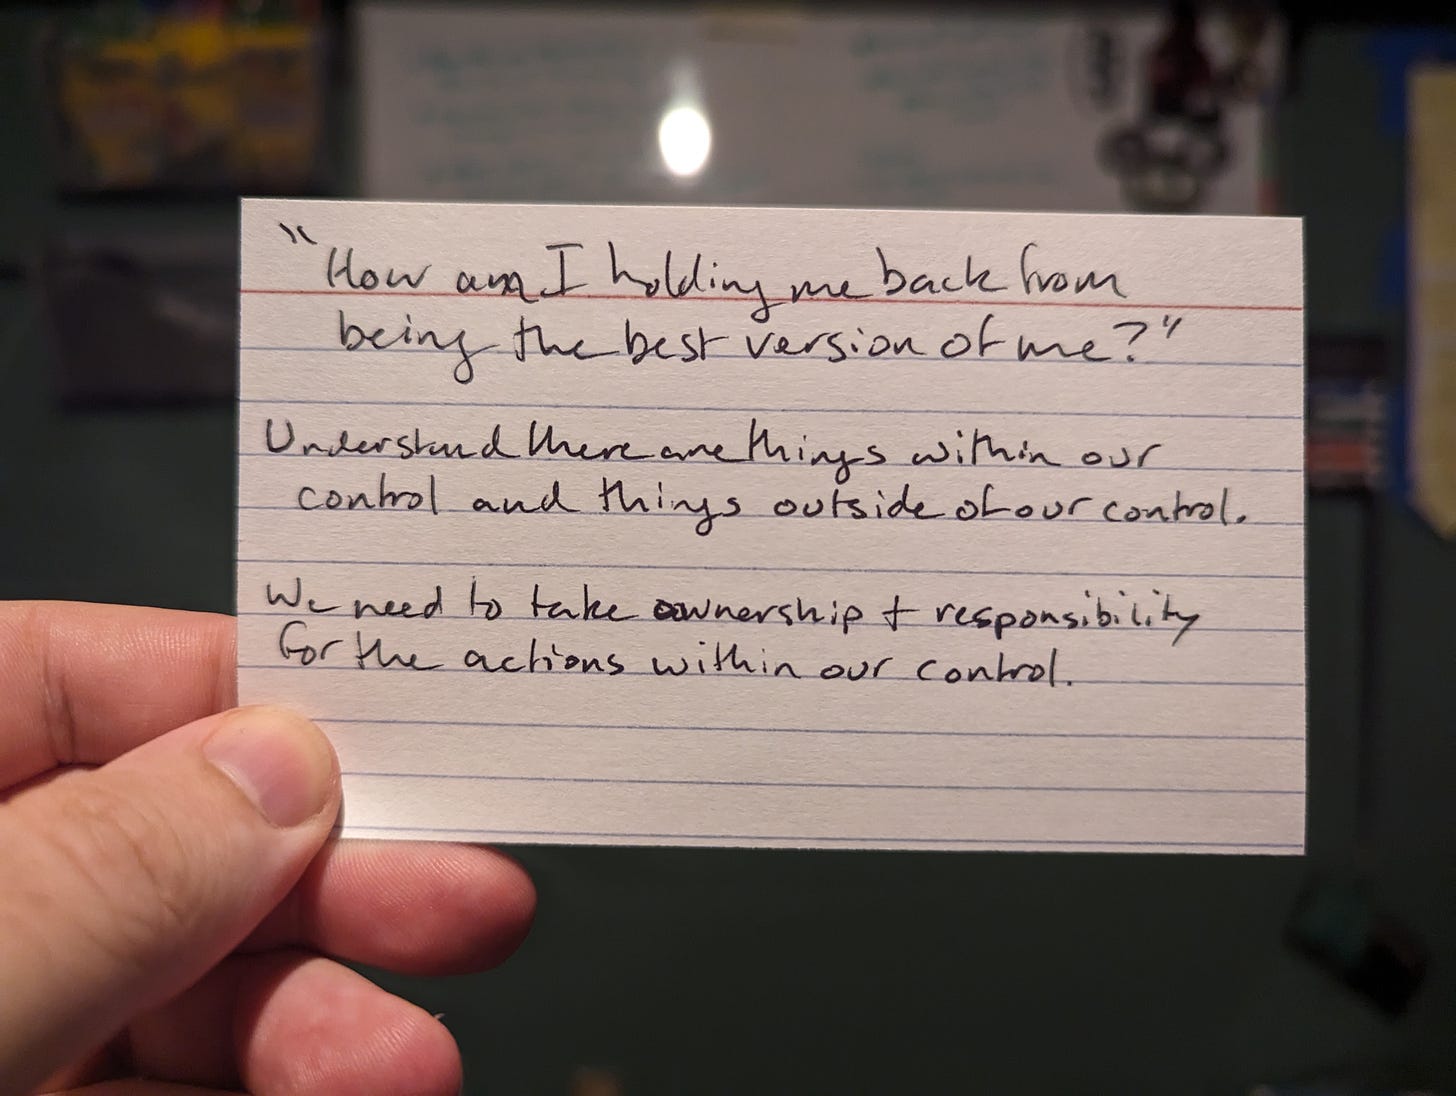 "How am I holding me back from
being the best version of me?"
Understand there are things within our
control and things outside of our control.
We need to take ownership + responsibility
for the actions within our control.